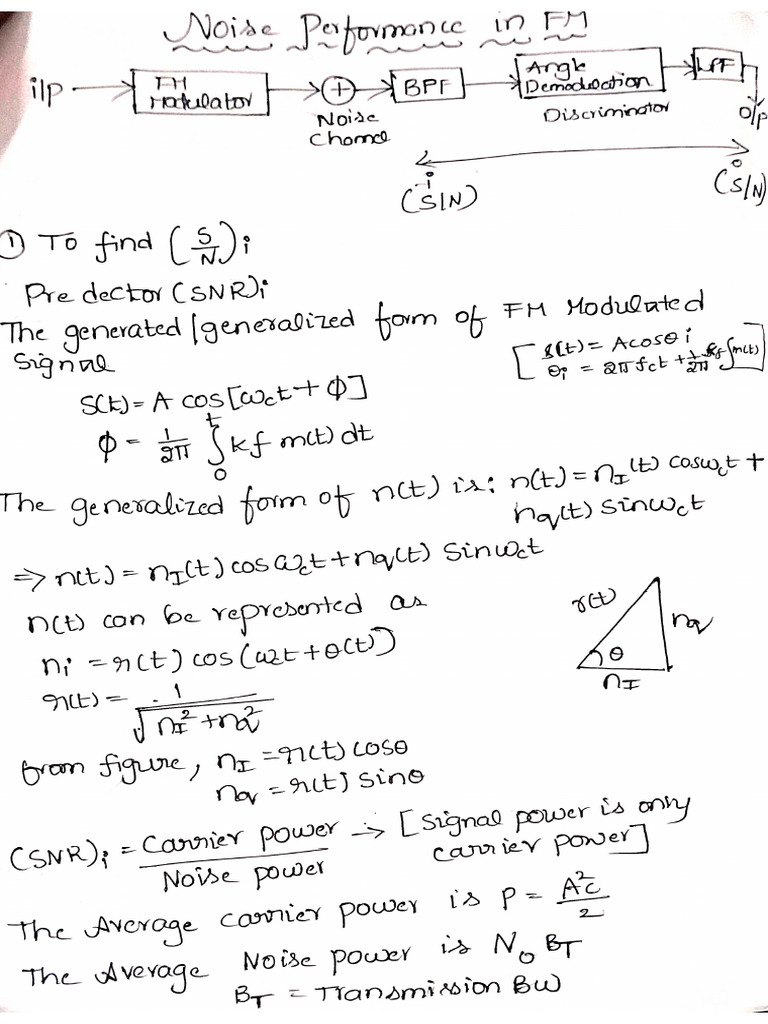 Noise Performance in FM
i/p FM Modulator + BPF Angle Demodulation LPF
Noise Discriminator o/p
Channel
(S/N)i (S/N)o
① To find (S/N)i
Pre dector (SNR)i
The generated/generalized form of FM Modulated
Signal [s(t) = A cosθi
θi = 2πfct + 1/2π kf∫m(t)]
S(t) = A cos[ωct + Φ]
Φ = 1/2π ∫0^t kf m(t) dt
The generalized form of n(t) is: n(t) = nI(t) cosωct +
nq(t) sinωct
⇒ n(t) = nI(t) cosωct + nq(t) Sinωct
n(t) can be represented as
ni = r(t) cos(ωct + θ(t))
r(t) = 1/√(nI² + nq²)
r(t) nq θ nI
from figure, nI = r(t) cosθ
nq = r(t) sinθ
(SNR)i = Carrier power / Noise power → [Signal power is only
carrier power]
The Average carrier power is P = Ac²/2
The Average Noise power is No BT
BT = Transmission BW